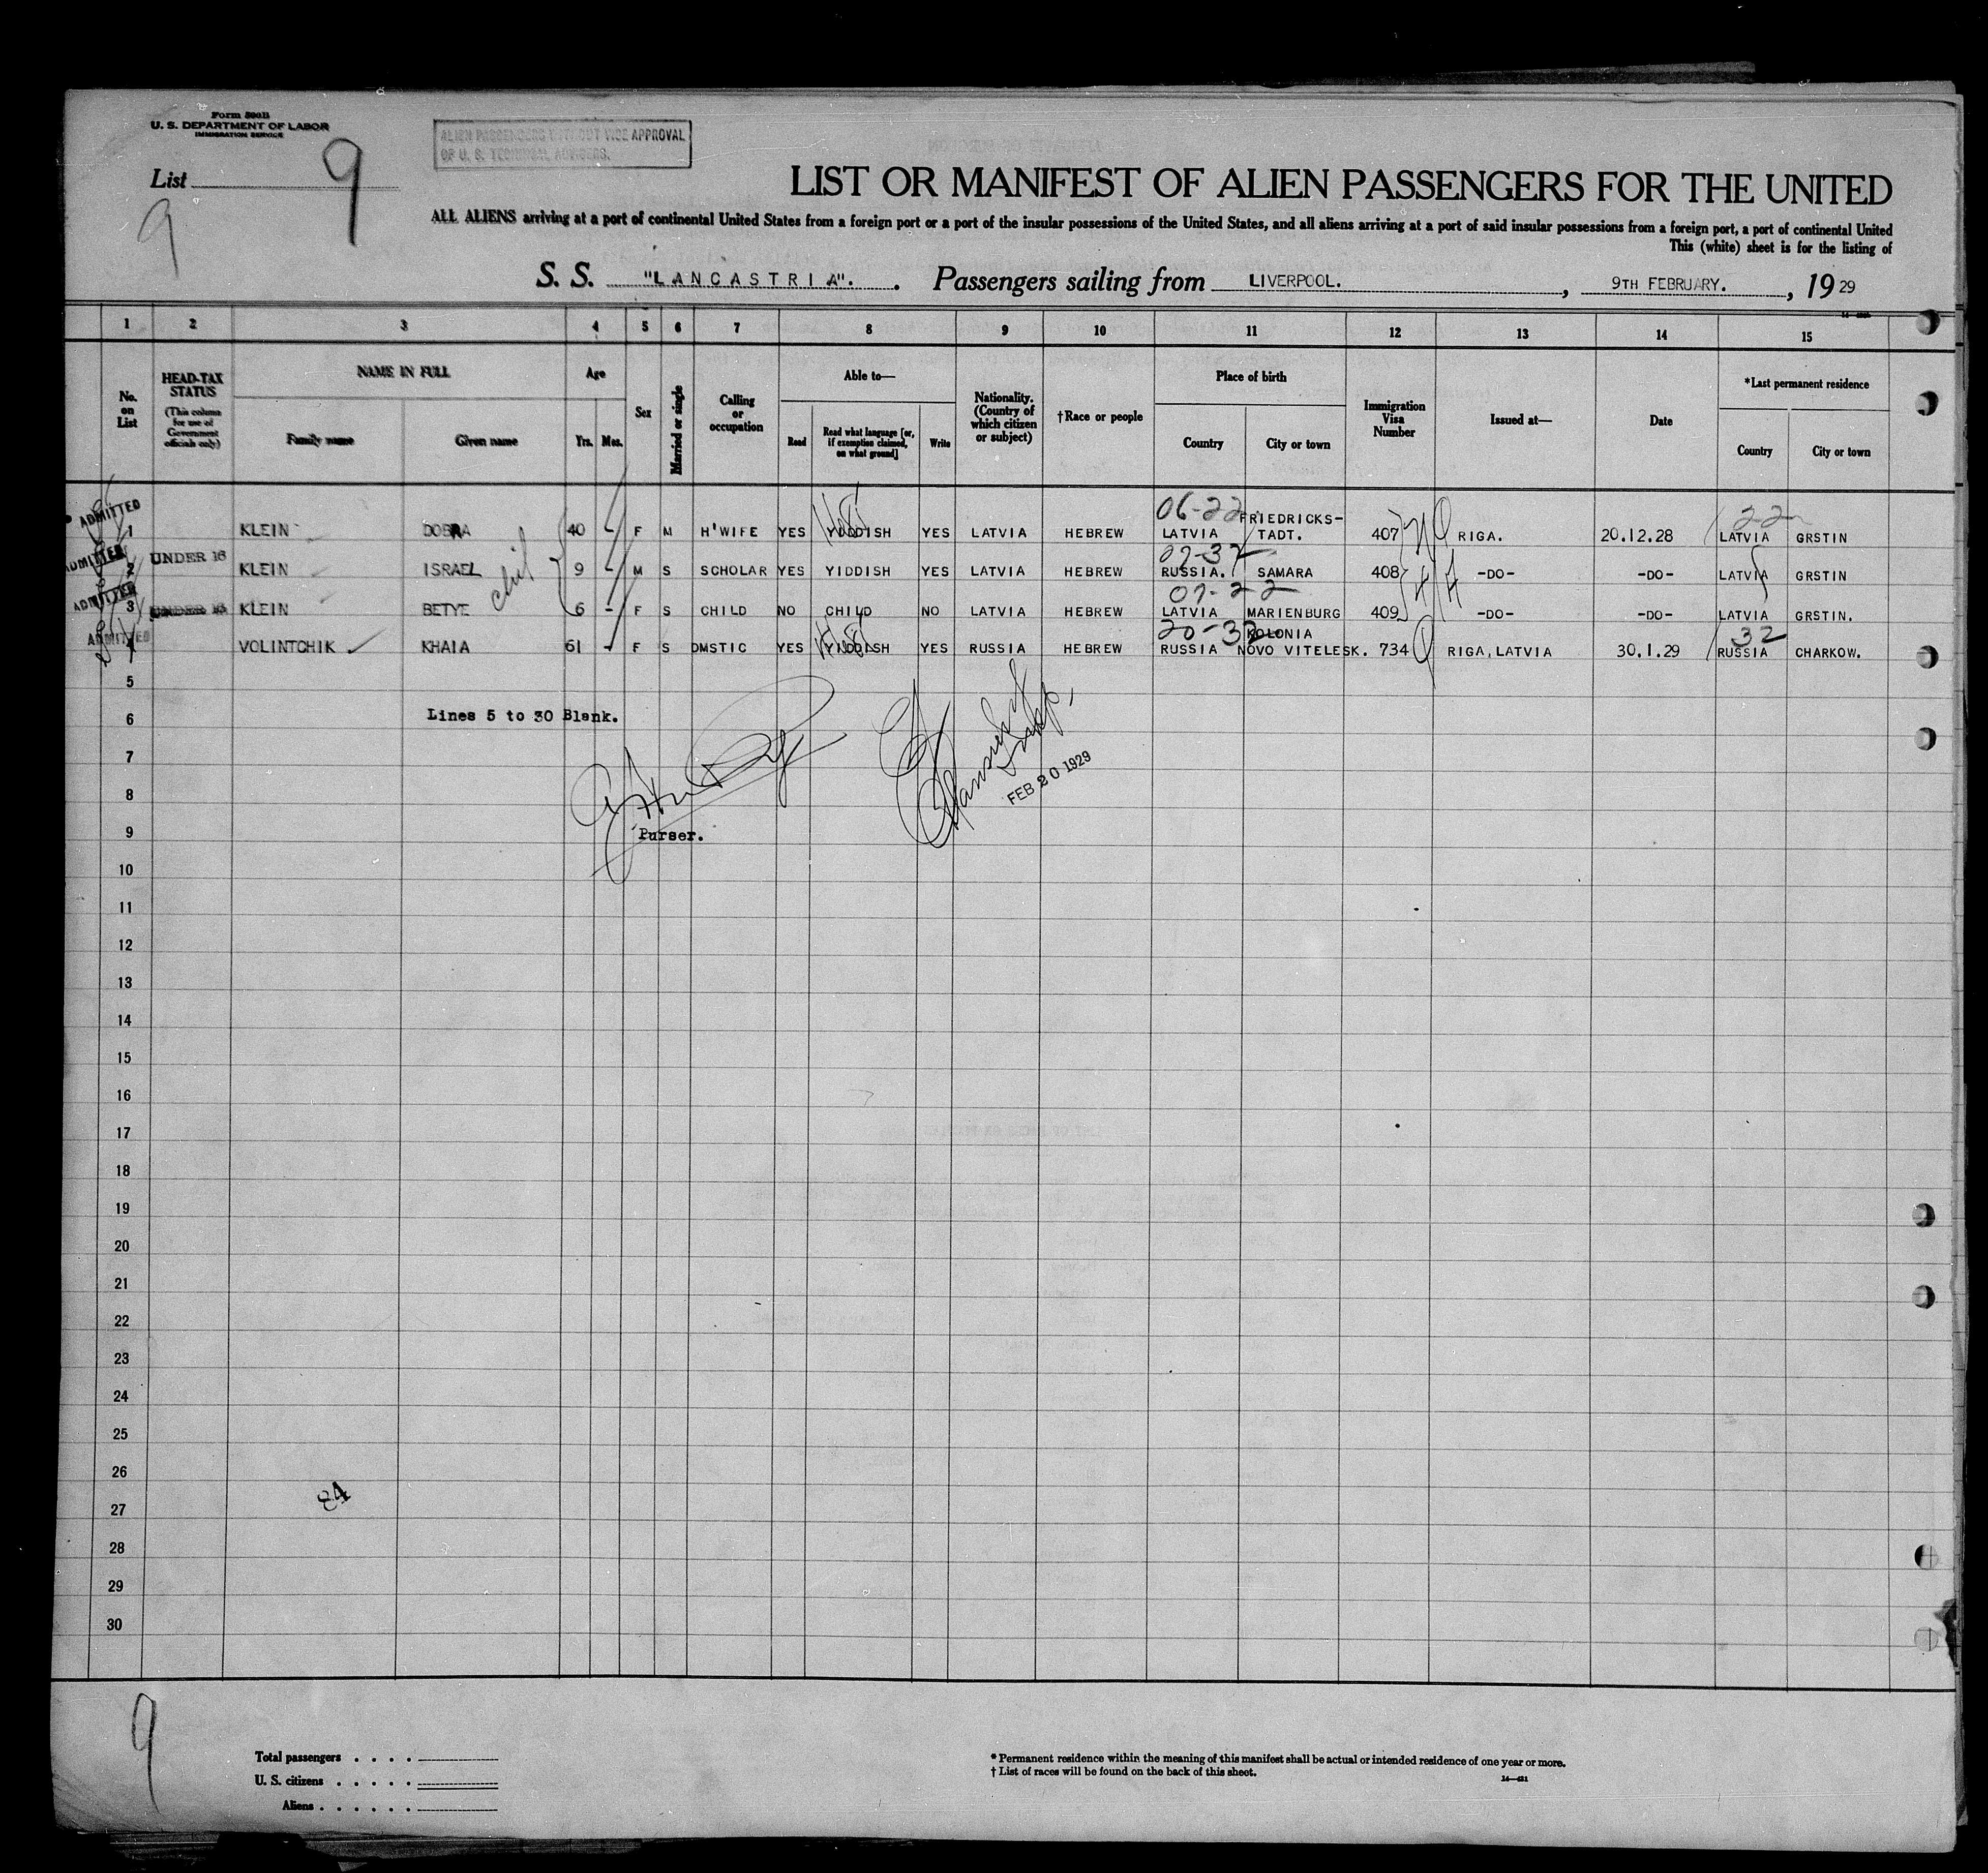 Form 500B
U. S. DEPARTMENT OF LABOR
IMMIGRATION SERVICE
ALIEN PASSENGERS WITHOUT VISE APPROVAL
OF U. S. TECHNICAL ADVISERS.
List 9
9
LIST OR MANIFEST OF ALIEN PASSENGERS FOR THE UNITED
ALL ALIENS arriving at a port of continental United States from a foreign port or a port of the insular possessions of the United States, and all aliens arriving at a port of said insular possessions from a foreign port, a port of continental United
This (white) sheet is for the listing of
S. S. "LANCASTRIA". Passengers sailing from LIVERPOOL. , 9TH FEBRUARY. , 19 29
1 2 3 4 5 6 7 8 9 10 11 12 13 14 15
No. on List
HEAD-TAX STATUS (This column for use of Government officials only)
NAME IN FULL
Family name Given name
Age
Yrs. Mos.
Sex
Married or single
Calling or occupation
Able to—
Read Read what language [or, if exemption claimed, on what ground] Write
Nationality. (Country of which citizen or subject)
†Race or people
Place of birth
Country City or town
Immigration Visa Number
Issued at—
Date
*Last permanent residence
Country City or town
06-22 FRIEDRICKS- 22
ADMITTED 1 KLEIN DOBRA 40 - F M H'WIFE YES YIDDISH YES LATVIA HEBREW LATVIA TADT. 407 RIGA. 20.12.28 LATVIA GRSTIN
07-32
ADMITTED 2 UNDER 16 KLEIN ISRAEL 9 - M S SCHOLAR YES YIDDISH YES LATVIA HEBREW RUSSIA. SAMARA 408 -DO- -DO- LATVIA GRSTIN
07-22
ADMITTED 3 UNDER 16 KLEIN BETYE 6 - F S CHILD NO CHILD NO LATVIA HEBREW LATVIA MARIENBURG 409 -DO- -DO- LATVIA GRSTIN.
20-32 KOLONIA 32
ADMITTED 4 VOLINTCHIK KHAIA 61 - F S DMSTIC YES YIDDISH YES RUSSIA HEBREW RUSSIA NOVO VITELESK. 734 RIGA, LATVIA 30.1.29 RUSSIA CHARKOW.
5
6 Lines 5 to 30 Blank.
7
8 FEB 20 1929
9 Purser.
10
11
12
13
14
15
16
17
18
19
20
21
22
23
24
25
26
84
27
28
29
30
9
Total passengers . . . .
U. S. citizens . . . . .
Aliens . . . . . .
* Permanent residence within the meaning of this manifest shall be actual or intended residence of one year or more.
† List of races will be found on the back of this sheet.
14—421